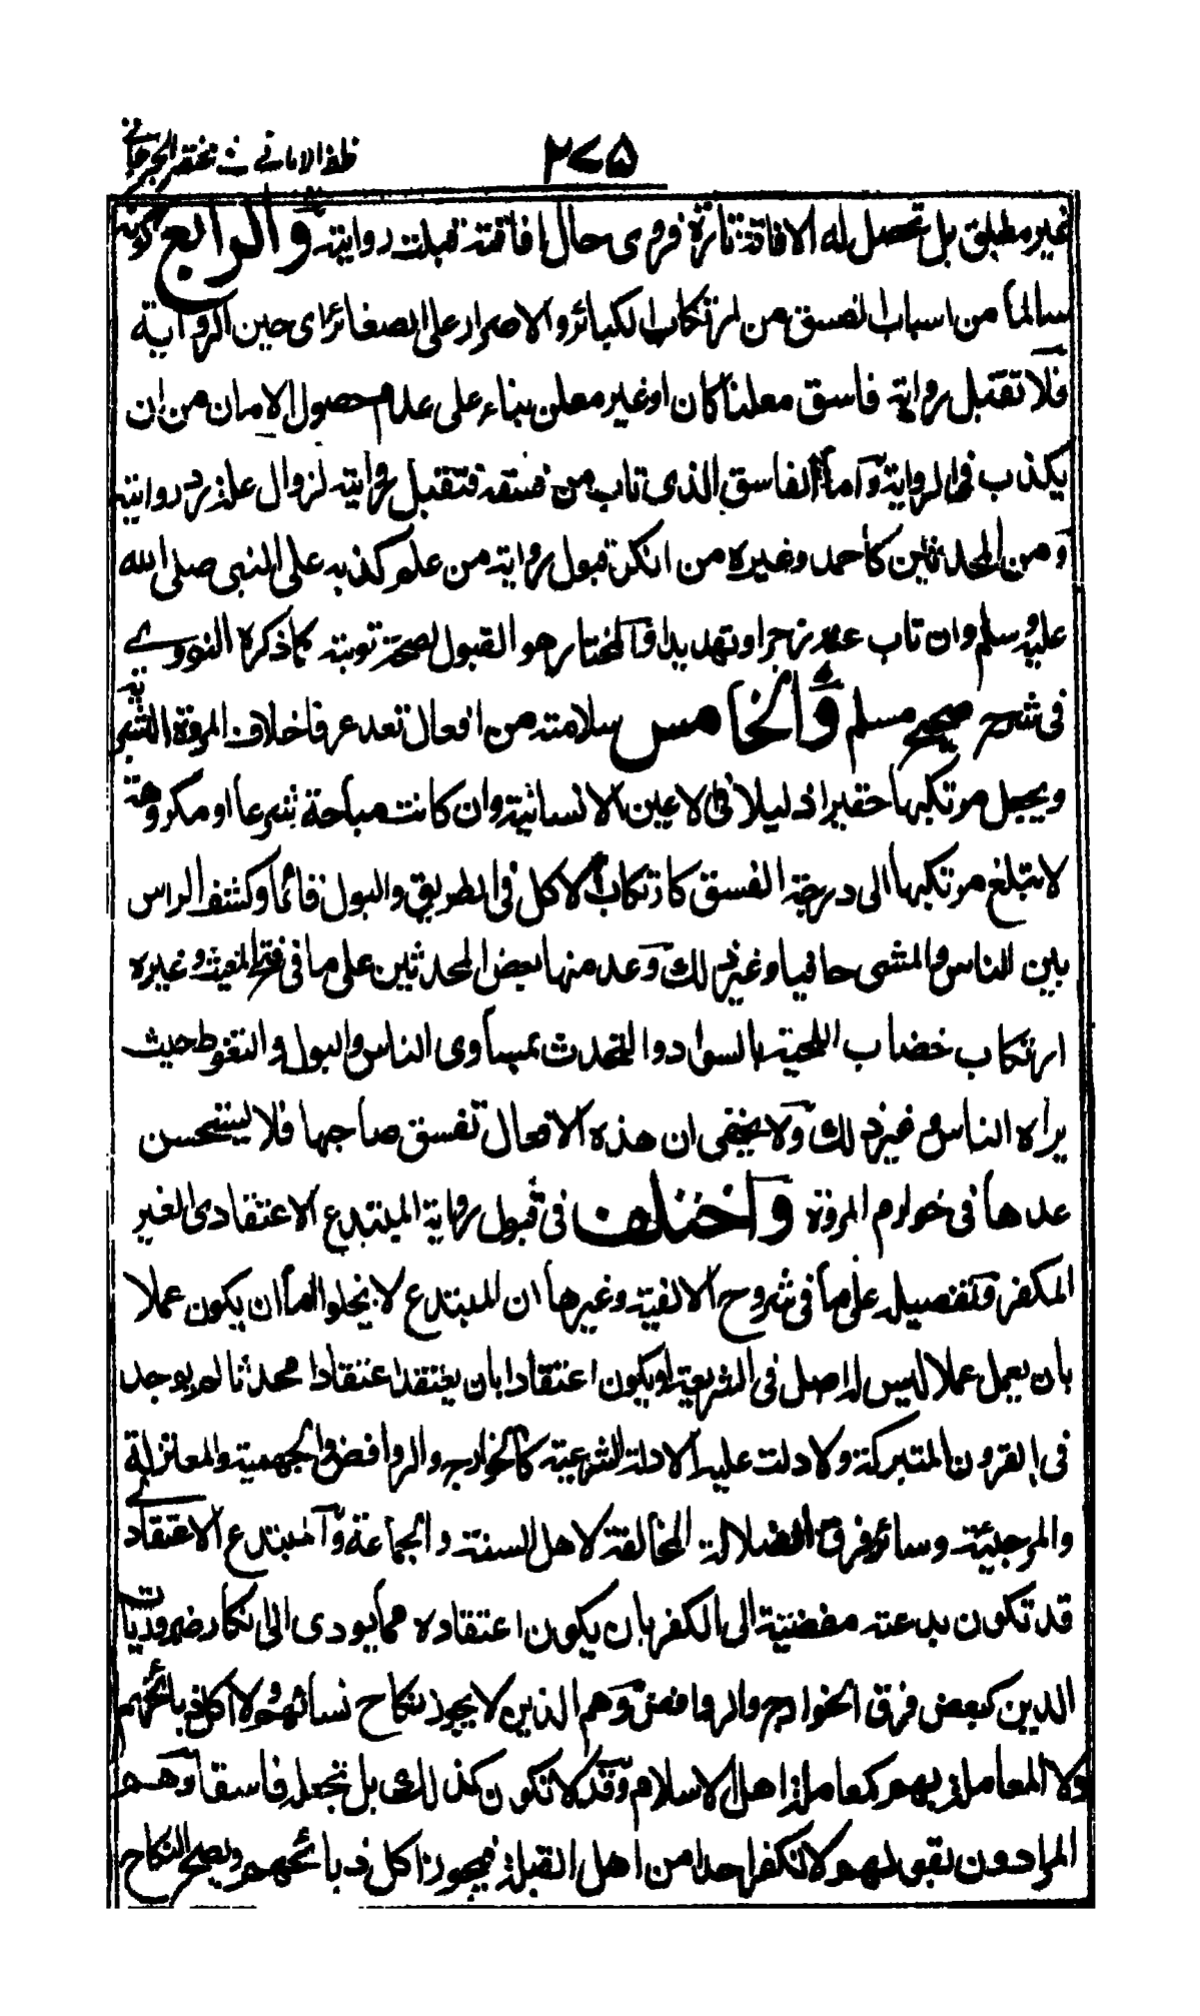 ۲۷۵ ظفر الامانی فی مختصر الجرجانی
غير مطبق بل تحصل له الافاقة تارة فروى حال افاقته قبلت روايته والرابع كونه
سالما من اسباب الفسق من ارتكاب الكبائر والاصرار على الصغائر اى حين الرواية
فلا تقبل رواية فاسق معلنا كان او غير معلن بناء على عدم حصول الامان من ان
يكذب فى الرواية واما الفاسق الذى تاب من فسقه فتقبل روايته لزوال علة رد روايته
ومن المحدثين كاحمد وغيره من انكر قبول رواية من علم كذبه على النبى صلى الله
عليه وسلم وان تاب عنه زجرا وتهديدا والمختار هو القبول لصحة توبته كما ذكره النووى
فى شرح صحيح مسلم والخامس سلامته من افعال تعد عرفا خلاف المروة الشرعية
ويجعل مرتكبها حقيرا ذليلا فى الاعين الانسانية وان كانت مباحة شرعا او مكروهة
لا يبلغ مرتكبها الى درجة الفسق كارتكاب الاكل فى الطريق والبول قائما وكشف الراس
بين الناس والمشى حافيا وغير ذلك وعد منها بعض المحدثين على ما فى فتح المغيث وغيره
ارتكاب خضاب اللحية بالسواد والتحدث بمساوى الناس والبول والتغوط حيث
يراه الناس وغير ذلك ولا يخفى ان هذه الافعال تفسق صاحبها فلا يستحسن
عدها فى خوارم المروة واختلف فى قبول رواية المبتدع الاعتقادى الغير
المكفر وتفصيله على ما فى شروح الالفية وغيرها ان المبتدع لا يخلوا اما ان يكون عملا
بان يعمل عملا ليس له اصل فى الشريعة او يكون اعتقادا بان يعتقد اعتقادا محدثا لم يوجد
فى القرون المتبركة ولا دلت عليه الادلة الشرعية كالخوارج والروافض والجهمية والمعتزلة
والمرجئة وسائر فرق الضلالة المخالفة لاهل السنة والجماعة وآ مبتدع الاعتقادى
قد تكون بدعته مفضية الى الكفر بان يكون اعتقاده مما يودى الى انكار ضروريات
الدين كبعض فرق الخوارج والروافض وهم الذين لا يجوز نكاح نسائهم ولا اكل ذبائحهم
ولا المعاملة بهم كمعاملة اهل الاسلام وقد لا تكون كذلك بل تجعله فاسقا وهم
المرادون بقولهم لا نكفر احدا من اهل القبلة فيجوز اكل ذبائحهم ويصح النكاح